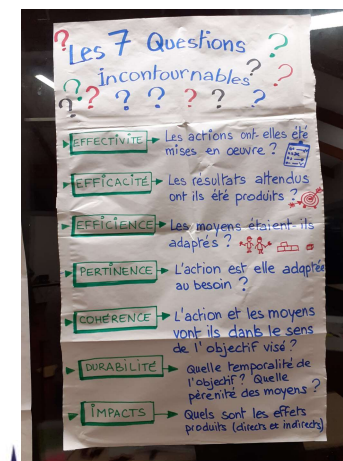 Les 7 Questions
incontournables
EFFECTIVITÉ → Les actions ont-elles été
mises en oeuvre ?
EFFICACITÉ → Les résultats attendus
ont ils été produits ?
EFFICIENCE → Les moyens étaient-ils
adaptés ?
PERTINENCE → L'action est elle adaptée
au besoin ?
COHÉRENCE → L'action et les moyens
vont ils dans le sens
de l'objectif visé ?
DURABILITÉ → Quelle temporalité de
l'objectif ? Quelle
pérenité des moyens ?
IMPACTS → Quels sont les effets
produits (directs et indirects)